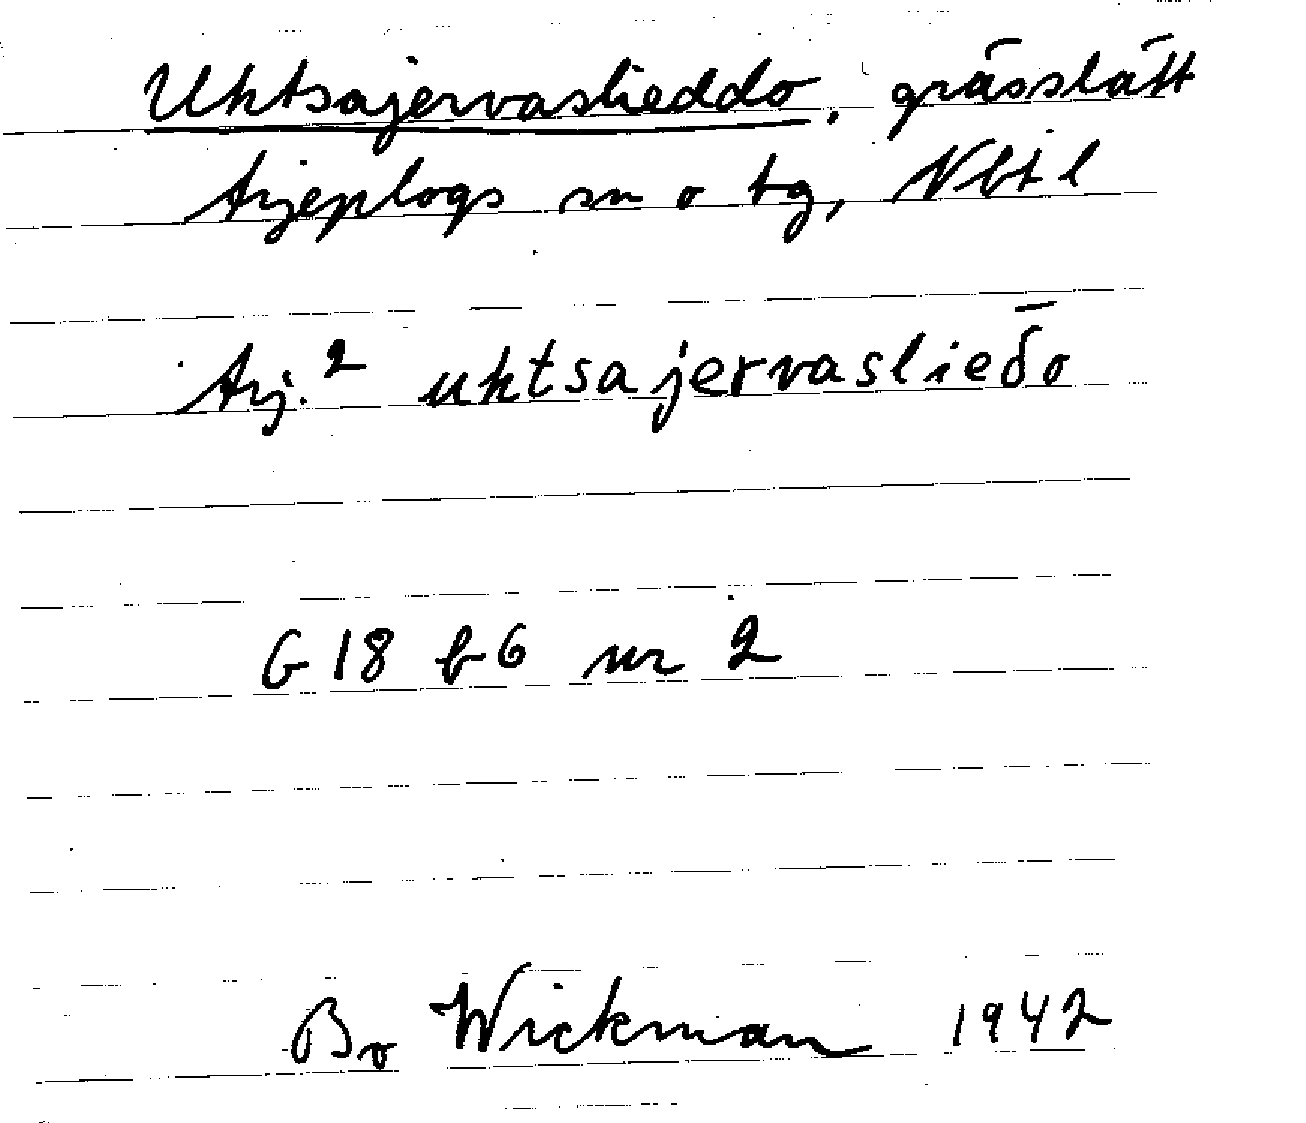 Uktsajervaslieddo, grässlått
Arjeplogs sn o tg, Nbt l
Arj.² uktsajervaslieδ̄o
G 18 b6 nr 2
Bo Wickman 1942